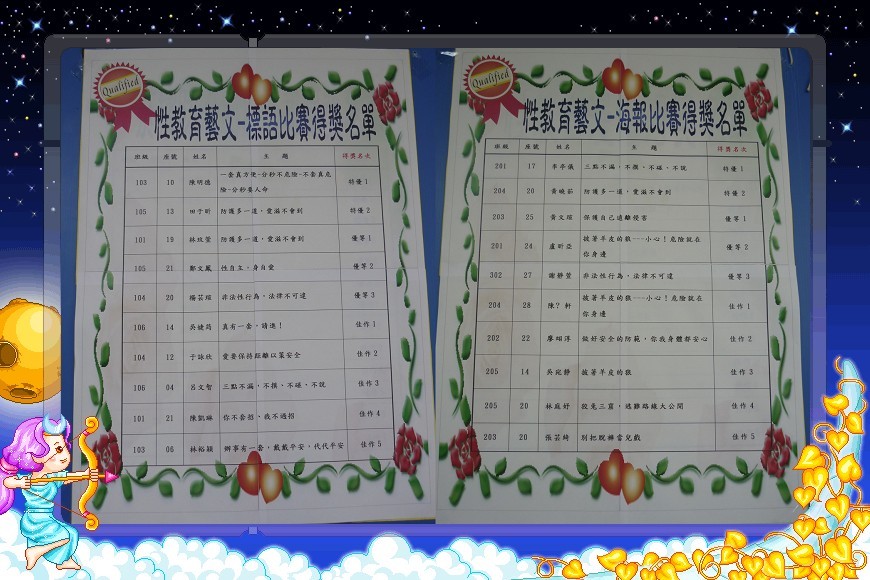 Qualified
性教育藝文-標語比賽得獎名單
班級 座號 姓名 主題 得獎名次
103 10 陳明德 一套真方便-分秒不危險-不套真危
險-分秒要人命 特優1
105 13 田于昕 防護多一道,愛滋不會到 特優2
101 19 林玟萱 防護多一道,愛滋不會到 優等1
105 21 鄭文鳳 性自主,身自愛 優等2
104 20 楊芸瑄 非法性行為,法律不可違 優等3
106 14 吳婕筠 真有一套,請進! 佳作1
104 12 于詠欣 愛要保持距離以策安全 佳作2
106 04 呂文智 三點不漏,不摸、不碰、不說 佳作3
101 21 陳凱琳 你不套招、我不過招 佳作4
103 06 林裕穎 辦事有一套,戴戴平安,代代平安 佳作5
Qualified
性教育藝文-海報比賽得獎名單
班級 座號 姓名 主題 得獎名次
201 17 李亭儀 三點不漏,不摸、不碰、不說 特優1
204 20 黃曉茹 防護多一道,愛滋不會到 特優2
203 25 黃文瑄 保護自己遠離侵害 優等1
201 24 盧昕亞 披著羊皮的狼---小心!危險就在
你身邊 優等2
302 27 謝靜萱 非法性行為,法律不可違 優等3
204 28 陳?軒 披著羊皮的狼---小心!危險就在
你身邊 佳作1
202 22 廖翊淳 做好安全的防範,你我身體都安心 佳作2
205 14 吳宛靜 披著羊皮的狼 佳作3
205 20 林庭妤 狡兔三窟,逃離路線大公開 佳作4
203 20 張芸綺 別把脫褲當兒戲 佳作5